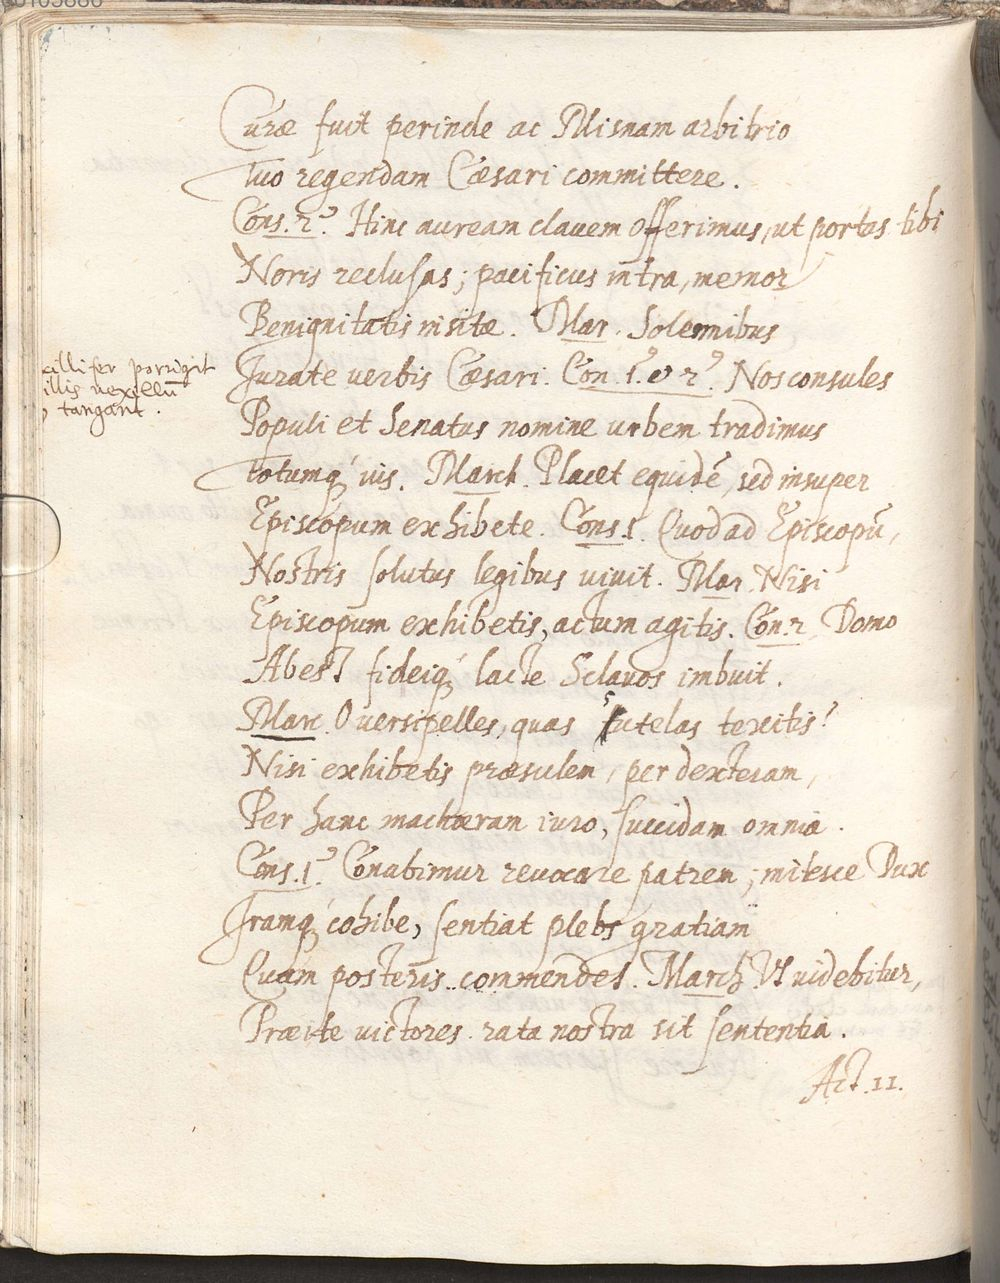 Curæ fuit perinde ac Misnam arbitrio
Tuo regendam Cæsari committere.
Cons. 2.ˢ Hinc auream clauem offerimus, ut portas tibi
Noris reclusas; pacificus intra, memor
Benignitatis insitæ. Mar. Solemnibus
Jurate uerbis Cæsari. Con. 1.ˢ et 2.ˢ Nos consules
Populi et Senatus nomine urbem tradimus
totumq́ ius. March. Placet equidē, sed insuper
Episcopum exhibete. Cons. 1. Quod ad Episcopū,
Nostris solutus legibus uiuit. Mar. Nisi
Episcopum exhibetis, actum agitis. Con. 2. Domo
Abest fideiq́ lacte Sclavos imbuit.
Marc. O versipelles, quas sutelas texitis?
Nisi exhibetis præsulem, per dexteram,
Per hanc machæram iuro, succidam omnia.
Cons. 1.ˢ Conabimur revocare patrem; mitesce Dux
Iramq́ cohibe, sentiat plebs gratiam
Quam posteris commendet. March. Vt uidebitur,
Præite uictores. rata nostra sit sententia.
Act. 11.
xillifer porrigit
illis uexillū
tangant.